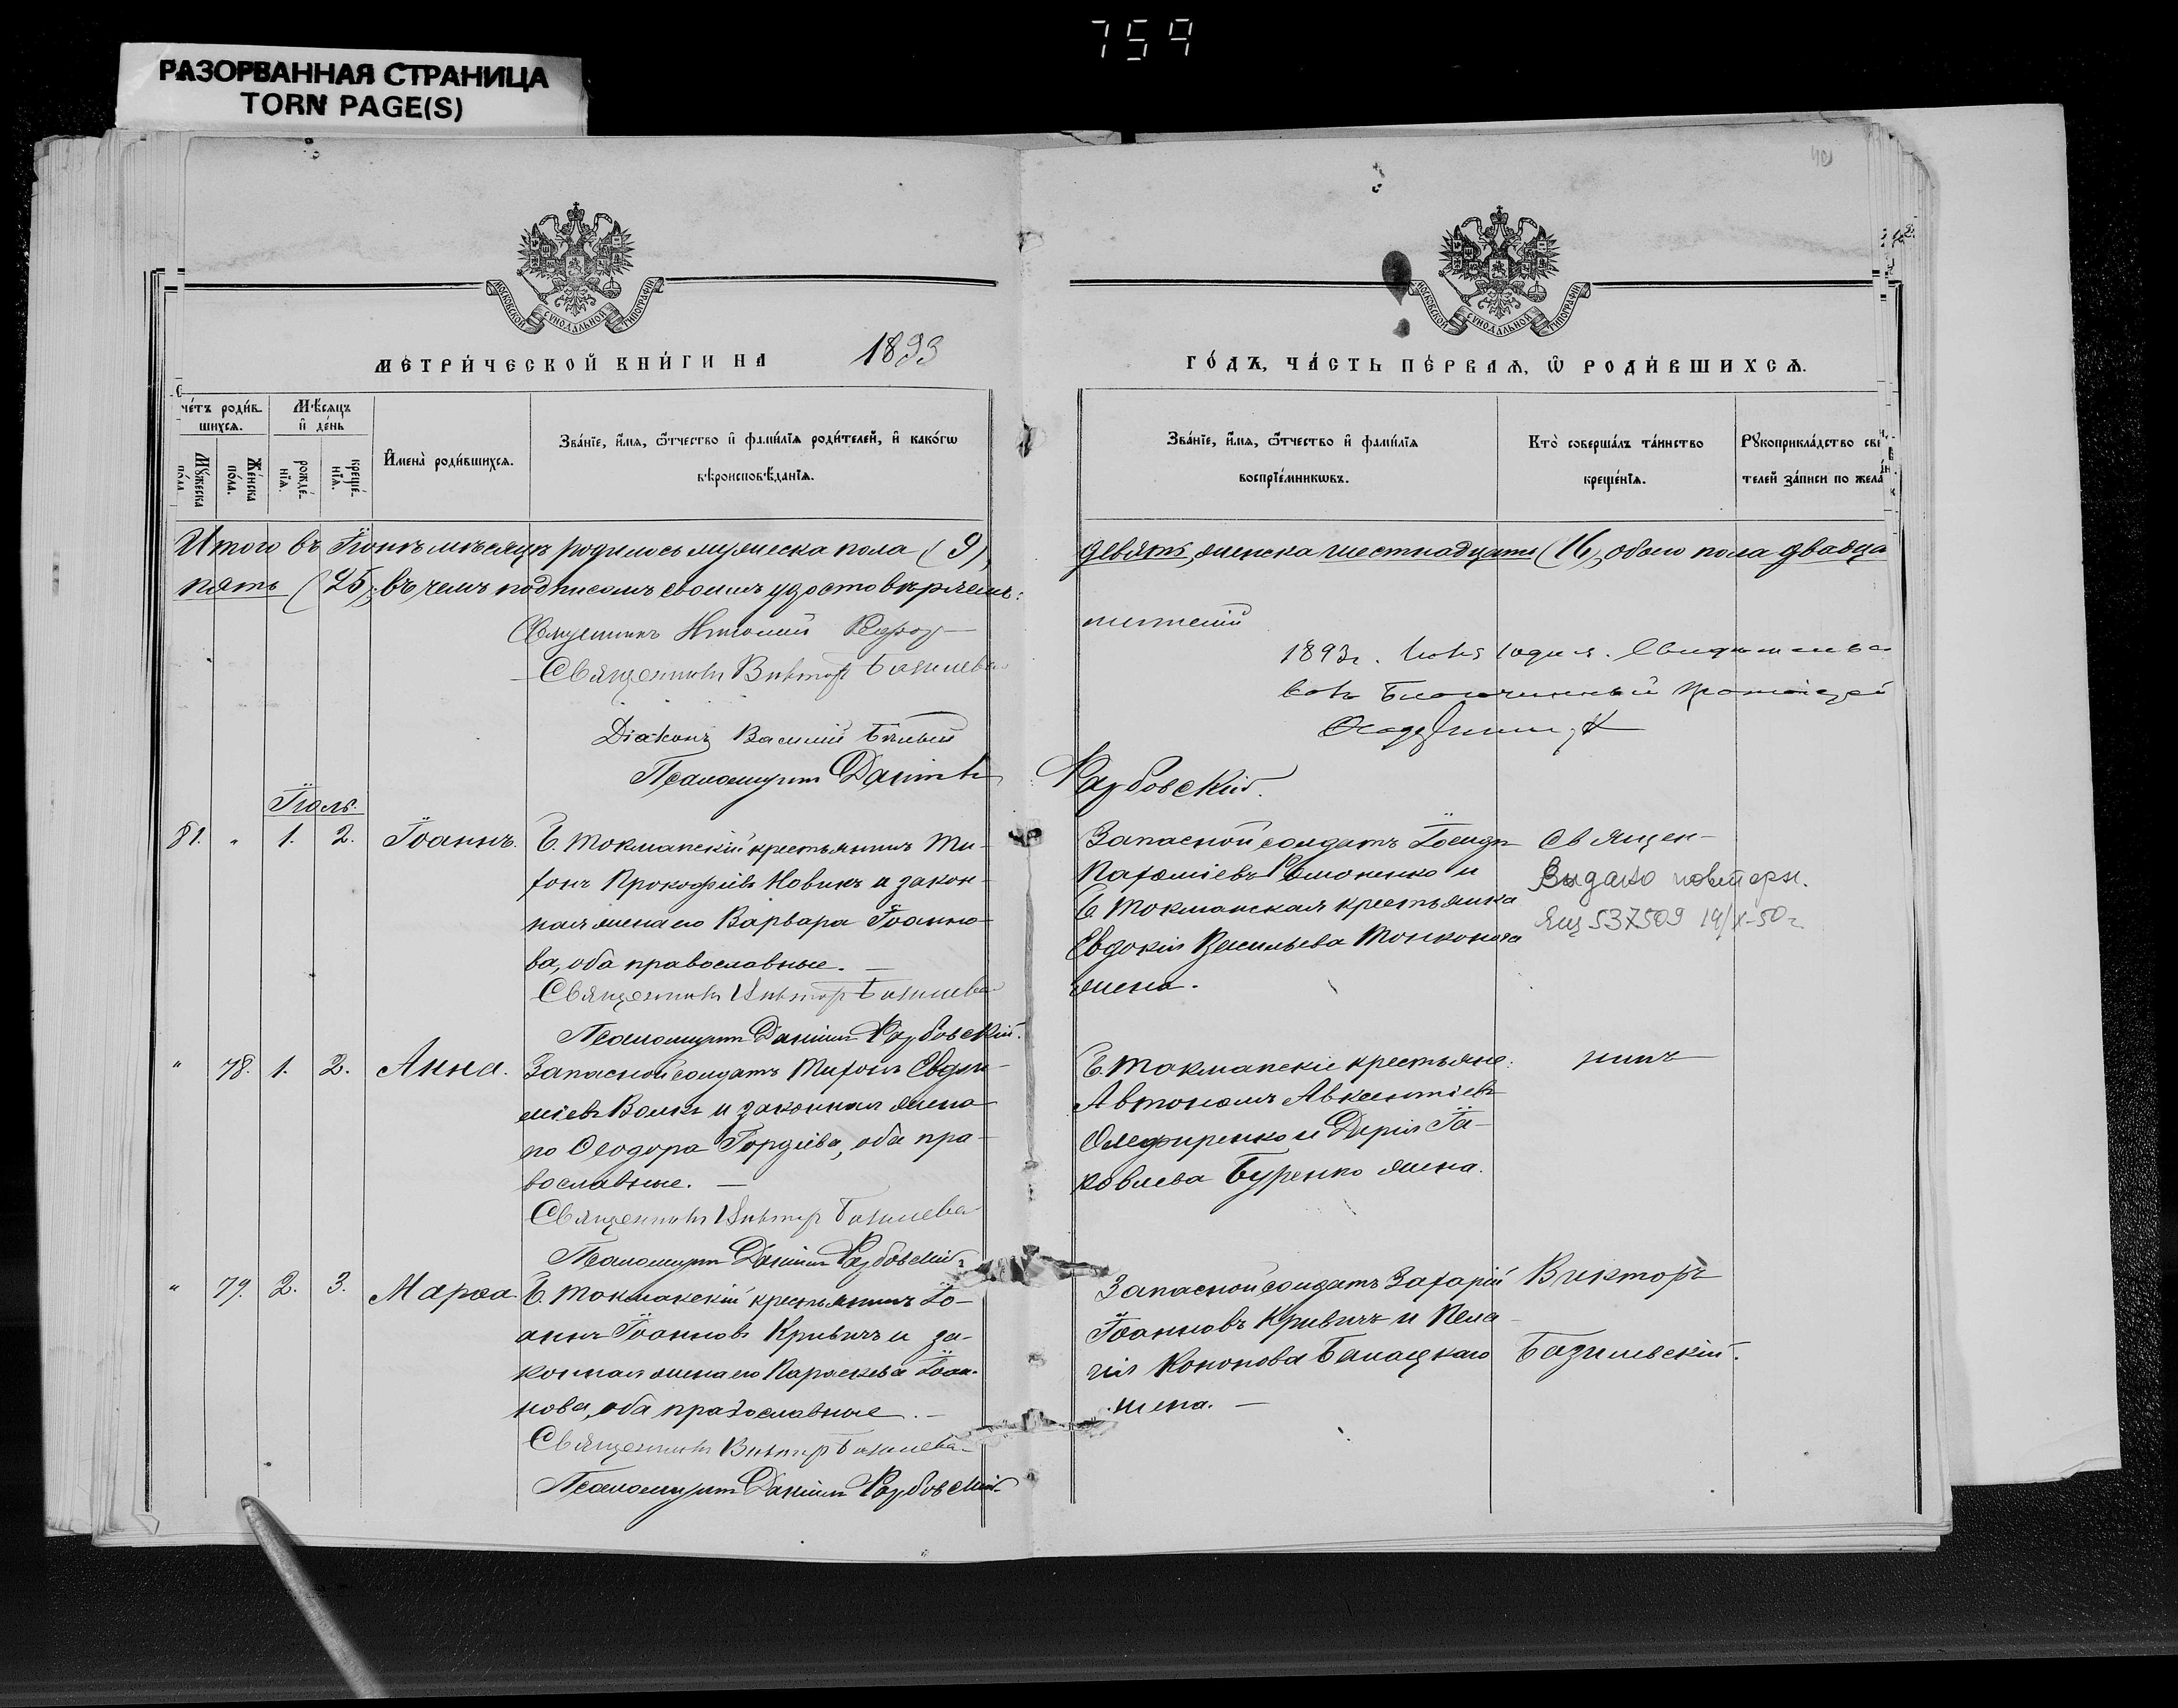 759
РАЗОРВАННАЯ СТРАНИЦА
TORN PAGE(S)
40
МОСКОВСКОЙ СУНОДАЛЬНОЙ ТИПОГРАФІИ
МОСКОВСКОЙ СУНОДАЛЬНОЙ ТИПОГРАФІИ
МЕТРИ́ЧЕСКОЙ КНИ́ГИ НА 1893
ГО́ДЪ, ЧА́СТЬ ПЕ́РВАЯ, Ѿ РОДИ́ВШИХСѦ.
че́тъ роди́в-
шихся.
Мѣ́сяцъ
и҆ де́нь
Му́жеска
по́ла
Же́нска
по́ла.
рожде́-
нїѧ.
креще́-
нїѧ.
И҆мена̀ роди́вшихся.
Зва́нїе, и҆́мя, ѻ҆́тчество и҆ фами́лїя роди́телей, и҆ како́гѡ
вѣроисповѣ́данїя.
Зва́нїе, и҆́мя, ѻ҆́тчество и҆ фами́лїя
воспрїе́мникѡвъ.
Кто̀ соверша́лъ та́инство
креще́нїя.
Рукоприкла́дство сви
телей за́писи по жела
Итого въ Іюнѣ мѣсяцѣ родилось мужеска пола (9),
девять, женска шестнадцать (16), обоего пола двадца
пять (25); въ чемъ подписомъ своимъ удостовѣряемъ:
Священникъ
Священникъ Викторъ Базилев
1893г.
Діаконъ Василій Бѣлый
Псаломщикъ Даніилъ
Разбовскій.
Іюль.
81. " 1. 2. Іоаннъ.
Б. Токмакскій крестьянинъ Ти-
хонъ Прокофіевъ Новикъ и закон-
ная жена его Варвара Іоанно-
ва, оба православные. —
Священникъ Викторъ Базилев
Псаломщикъ Даніилъ Разбовскій.
Запасной солдатъ Іосифъ
Пахоміевъ Симоненко и
Б. Токмакская крестьянка
Евдокія Васильева Тонконога
жена.
Священ-
Выдано повторн.
537509 19/X-50г.
" 78. 1. 2. Анна.
Запасной солдатъ Тихонъ Евфи-
міевъ Волкъ и законная жена
его Ѳеодора Гордіева, оба пра-
вославные. —
Священникъ Викторъ Базилев
Псаломщикъ Даніилъ Разбовскій
Б. Токмакскіе крестьяне:
Автономъ Авксентіевъ
Олефиренко и Дарія Іа-
ковлева Буренко жена.
никъ
" 79. 2. 3. Марѳа.
Б. Токмакскій крестьянинъ Іо-
аннъ Іоанновъ Кривичъ и за-
конная жена его Параскева Іоан-
нова, оба православные. —
Священникъ Викторъ Базилев
Псаломщикъ Даніилъ Разбовскій
Запасной солдатъ Захарій
Іоанновъ Кривичъ и Пела-
гія Кононова Балацкаго
жена. —
Викторъ
Базилевскій.